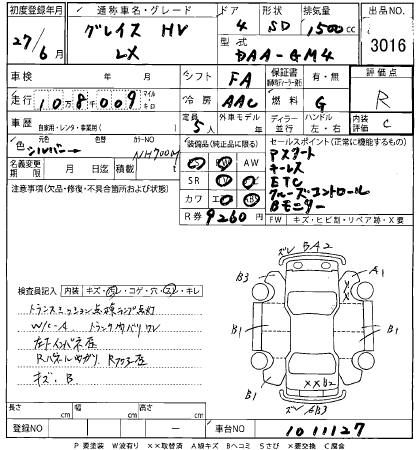 初度登録年月 通称車名・グレード ドア 形状 排気量 出品NO.
27/6月 グレイス HV LX 4 SD 1500cc 3016
型式 DAA-GM4
車検 年 月 シフト FA 保証書 有・無 評価点
走行 108009 マイル キロ 冷房 AAC 燃料 G R
車歴 自家用・レンタ・事業用( ) 定員 5人 外車モデル年 ディーラー 並行 ハンドル 左・右 内装評価 C
色 元色 シルバー カラーNO NH700M 装備品(純正品に限る) セールスポイント(正常に機能するもの)
名義変更期限 月 日迄 積載 t AW Pスタート
SR キーレス
注意事項(欠品・修復・不具合箇所および状態) カワ ETC
クルーズコントロール
Bモニター
R券 9260円 FW キズ・ヒビ割・リペア跡・X要
検査員記入 内装 キズ・汚レ・コゲ・穴・スレ・キレ
トランスミッション点検ランプ点灯
W/C-A トランク内バリ ワレ
キズ・B
ズレ BA2
B3 A1
B1 B1
B1 B1
XXB2
ズレ AB3
長さ cm 幅 cm 高さ cm
登録NO 車台NO 1011127
P 要塗装 W波有り ××取替済 A線キズ Bヘコミ Sさび ×要交換 C腐食